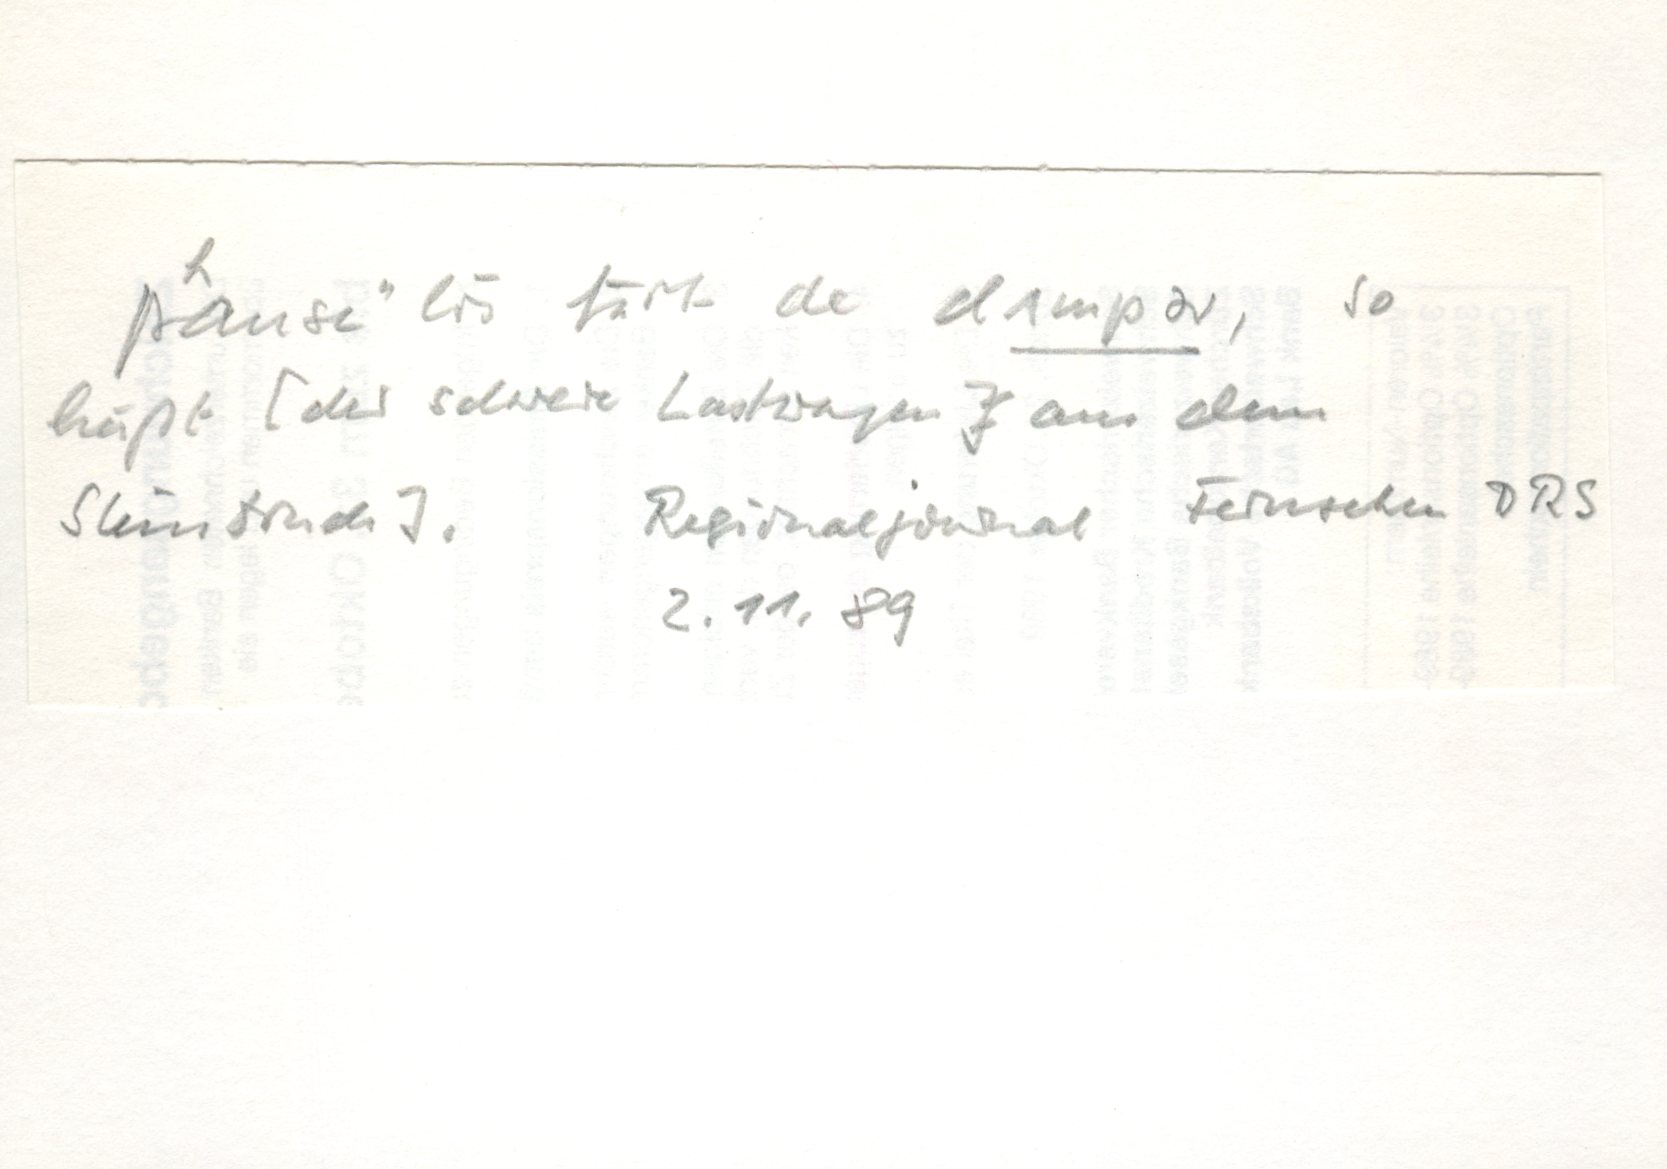 pʰausə"lōs fārt de dʌmpər, so
heißt [der schwere Lastwagen] aus dem
Steinbruch]. Regionaljournal Fernsehen DRS
2.11.89